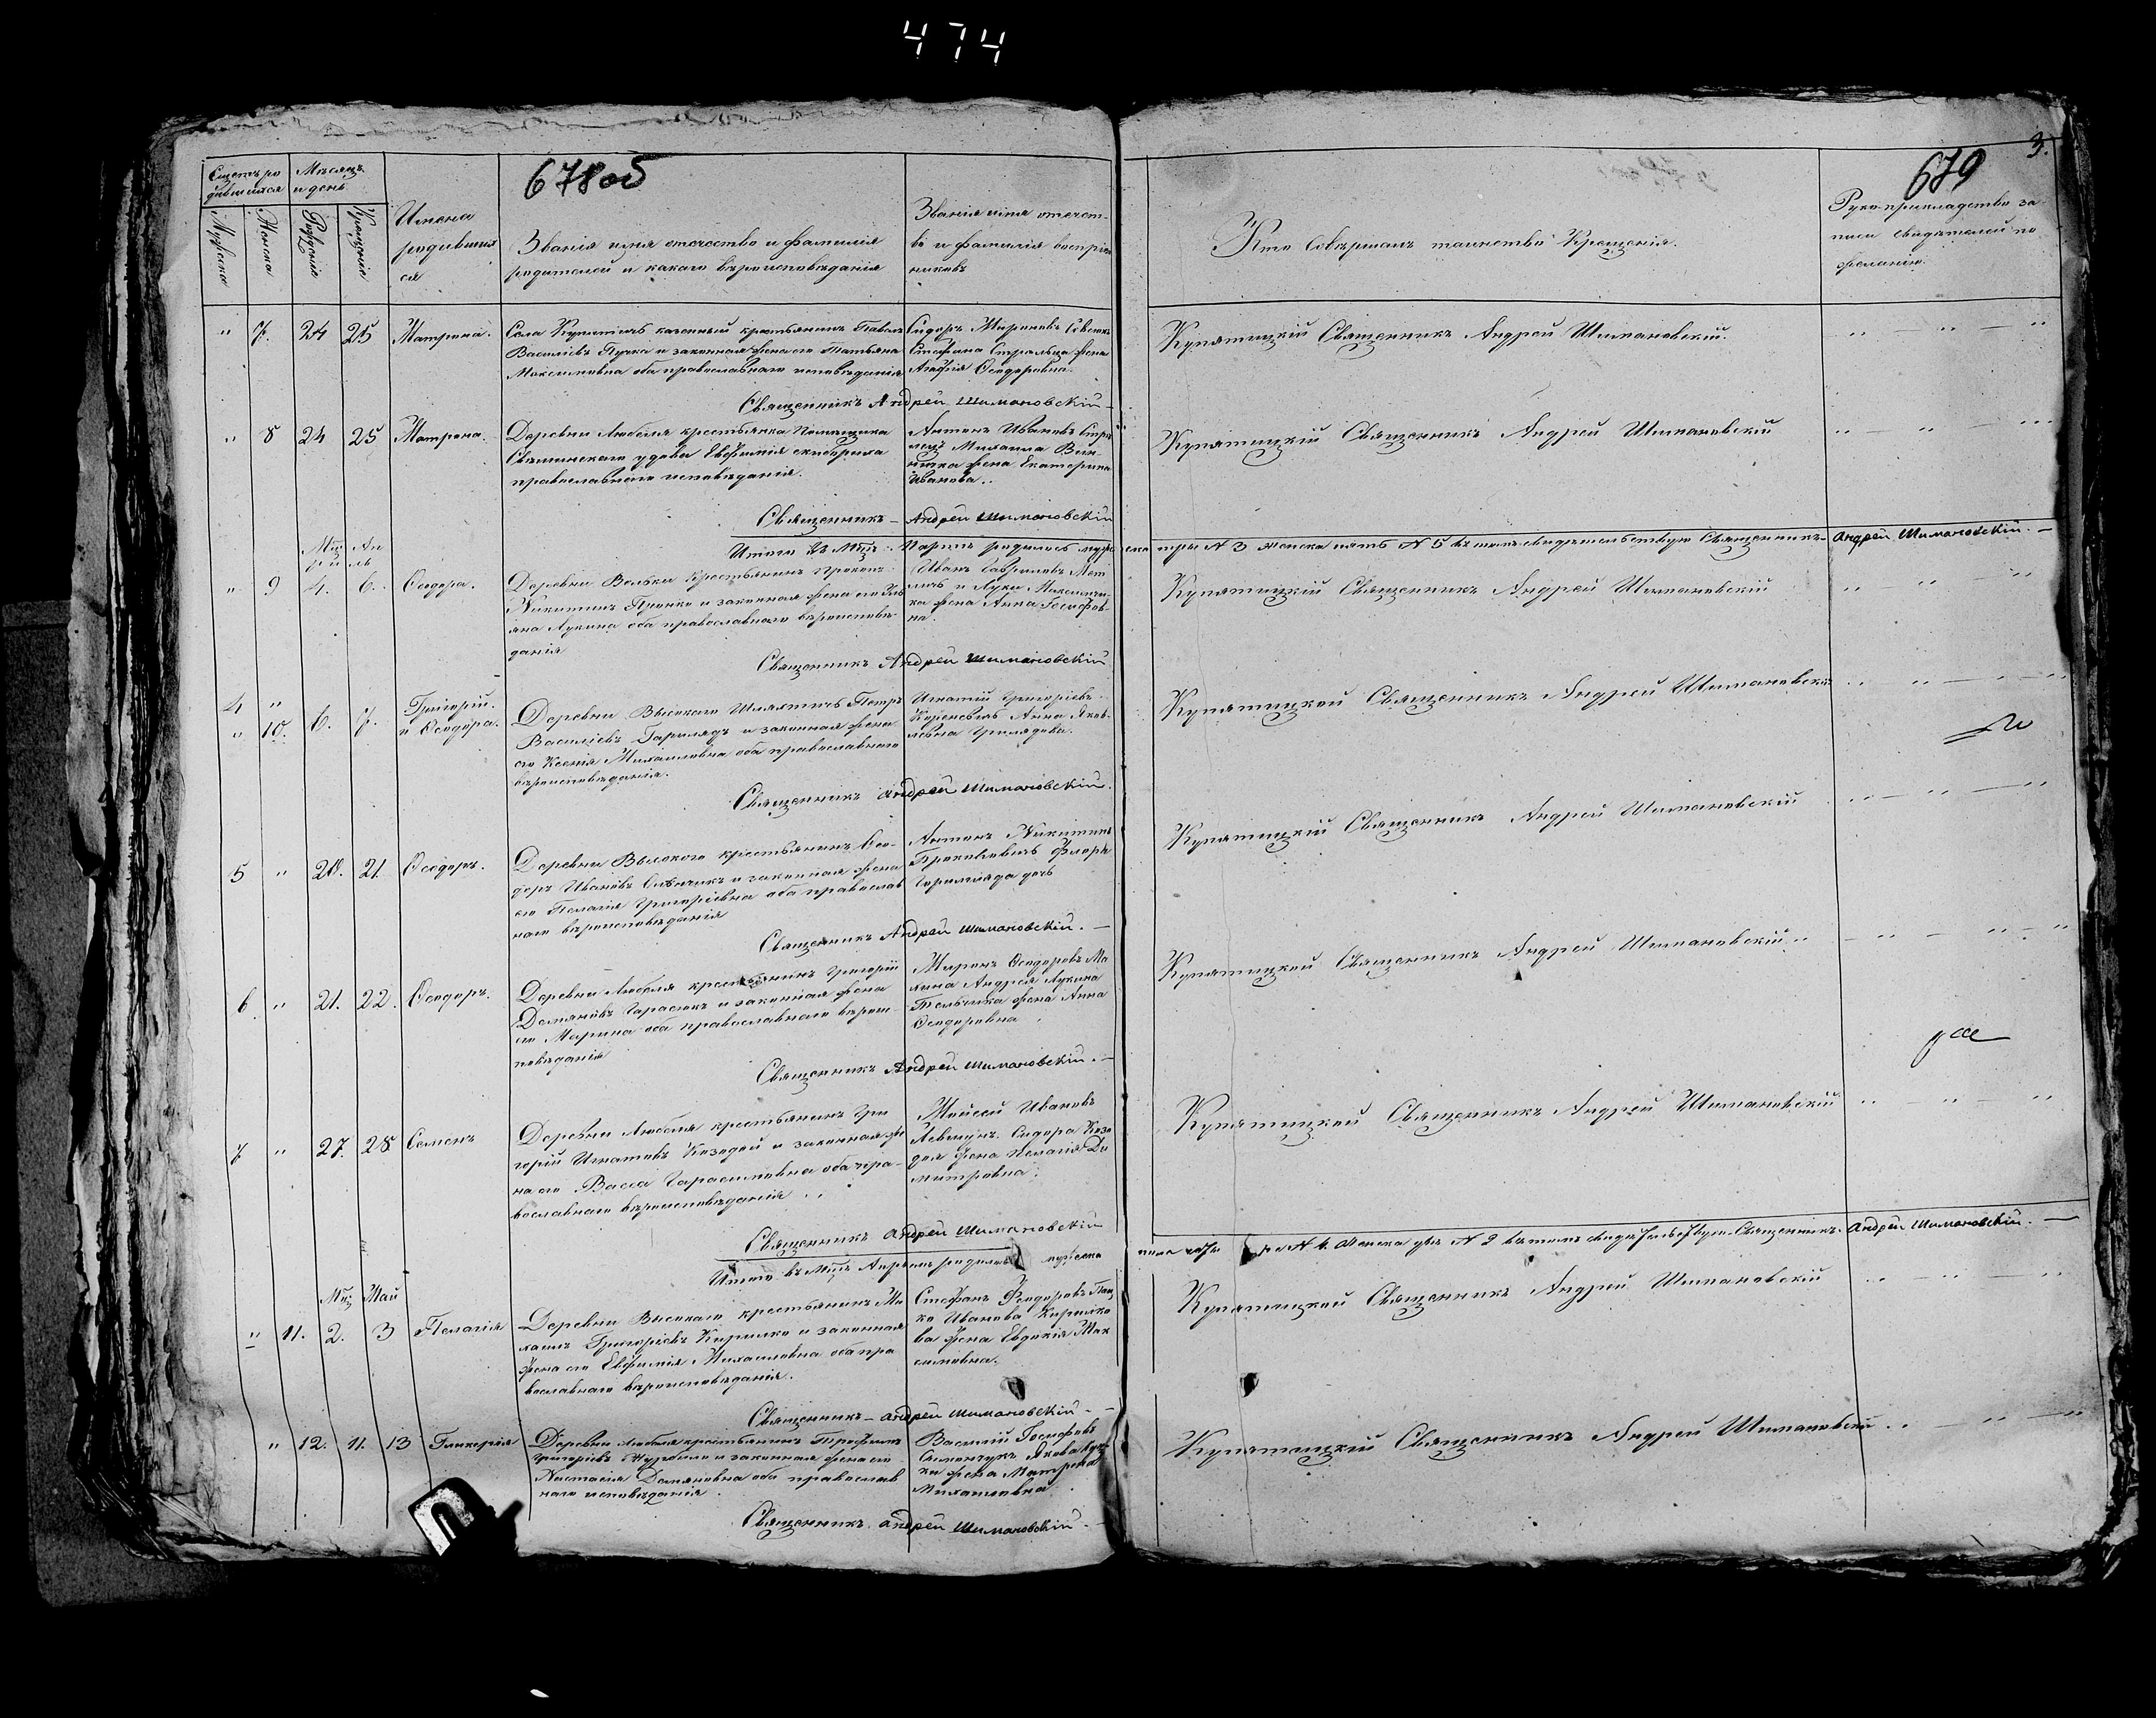 474
678об
679
3.
Счетъ ро
дившихся
Мѣсяцъ
и день
Мужеска
Женска
Рожденія
Крещенія
Имена
родивших
ся
Званія имя отечество и фамилія
родителей и какого вѣроисповѣданія
Званія имя отечест-
во и фамилія воспріем
никовъ
Кто совершалъ таинство Крещенія.
Рукоприкладство за-
писи свидѣтелей по
желанію.
" 7. 24 25 Матрона.
Села Купятичъ казенный крестьянинъ Павелъ
Василіевъ Пучка и законная жена его Татьяна
Максимовна оба православнаго исповѣданія
Сидоръ Мироновъ
Стефана Стрельца жена
Агафія Ѳеодоровна.
Купятицкій Священникъ Андрей Шимановскій.
Священникъ Андрей Шимановскій
" 8 24 25 Матрона.
Деревни Любеля крестьянка Помѣщика
удова Евфимія
православнаго исповѣданія.
Антонъ Ивановъ Стрѣ
лецъ Михаила Вин-
жена Екатерина
Иванова.
Купятицкій Священникъ Андрей Шимановскій
Священникъ - Андрей Шимановскій
Итого въ Мцѣ Мартѣ родилось мужеска три № 3 женска пять № 5 въ томъ свидѣтельствую Священникъ Андрей Шимановскій.
Мцъ Ап
рѣль
" 9 4. 6. Ѳеодора.
Деревни Вольки крестьянинъ Прокопъ
Никитинъ Пронько и законная жена его Уль
яна Лукина оба православнаго вѣроисповѣ-
данія
Иванъ Гавриловъ
и Луки
ка жена Анна Іосифов-
на.
Купятицкій Священникъ Андрей Шимановскій
Священникъ Андрей Шимановскій
4 "
" 10. 6. 7.
Григорій.
и Ѳеодора.
Деревни Высокаго Шляхтичъ Петръ
Василіевъ и законная жена
его Ксенія Михаиловна оба православнаго
вѣроисповѣданія.
Игнатій Григоріевъ
Анна Яков-
левна
Купятицкой Священникъ Андрей Шимановскій
Священникъ Андрей Шимановскій.
5 " 20. 21. Ѳеодоръ.
Деревни Высокого крестьянинъ Ѳео-
доръ Ивановъ и законная жена
его Пелагія Григоріевна оба православ
наго вѣроисповѣданія
Антонъ Никитинъ
дочь
Купятицкій Священникъ Андрей Шимановскій
Священникъ Андрей Шимановскій.
6 " 21. 22. Ѳеодоръ.
Деревни Любеля крестьянинъ Григорій
Демяновъ Гарасюкъ и законная жена
его Марина оба православнаго вѣрои-
повѣданія
Миронъ Ѳеодоровъ Ма
Андрея Лукина
жена Анна
Ѳеодоровна
Купятицкой Священникъ Андрей Шимановскій
Священникъ Андрей Шимановскій.
7 " 27. 28 Семенъ
Деревни Любеля крестьянинъ Гри
горій Игнатовъ Козодой и законная же
на его Васса Гарасимовна оба пра-
вославнаго вѣроисповѣданія
Мойсей Ивановъ
Левшунъ. Сидора Козо
доя жена Пелагія Ди
митровна.
Купятицкой Священникъ Андрей Шимановскій
Священникъ Андрей Шимановскій
Итого въ Мцѣ Апрелѣ родилось мужеска № 4. женска двѣ № 2 въ томъ свидѣтельствую Священникъ Андрей Шимановскій.
Мцъ Май
" 11. 2. 3 Пелагія
Деревни Высокаго крестьянинъ Ми
хаилъ Григоріевъ Кирилко и законная
жена его Евфимія Михаиловна оба пра
вославнаго вѣроисповѣданія.
Стефанъ Ѳеодоровъ
ко Иванова Кирилко
ва жена Евдокія Мак
симовна.
Купятицкой Священникъ Андрей Шимановскій
Священникъ - Андрей Шимановскій.
" 12. 11. 13 Гликерія
Деревни Любеля крестьянинъ Трофимъ
Григоріевъ и законная жена его
Настасія Демяновна оба православ
наго исповѣданія.
Василій Іосифовъ
Семенчукъ Якова
ка жена Матрона
Михаиловна
Купятицкій Священникъ Андрей Шимановскій
Священникъ Андрей Шимановскій.